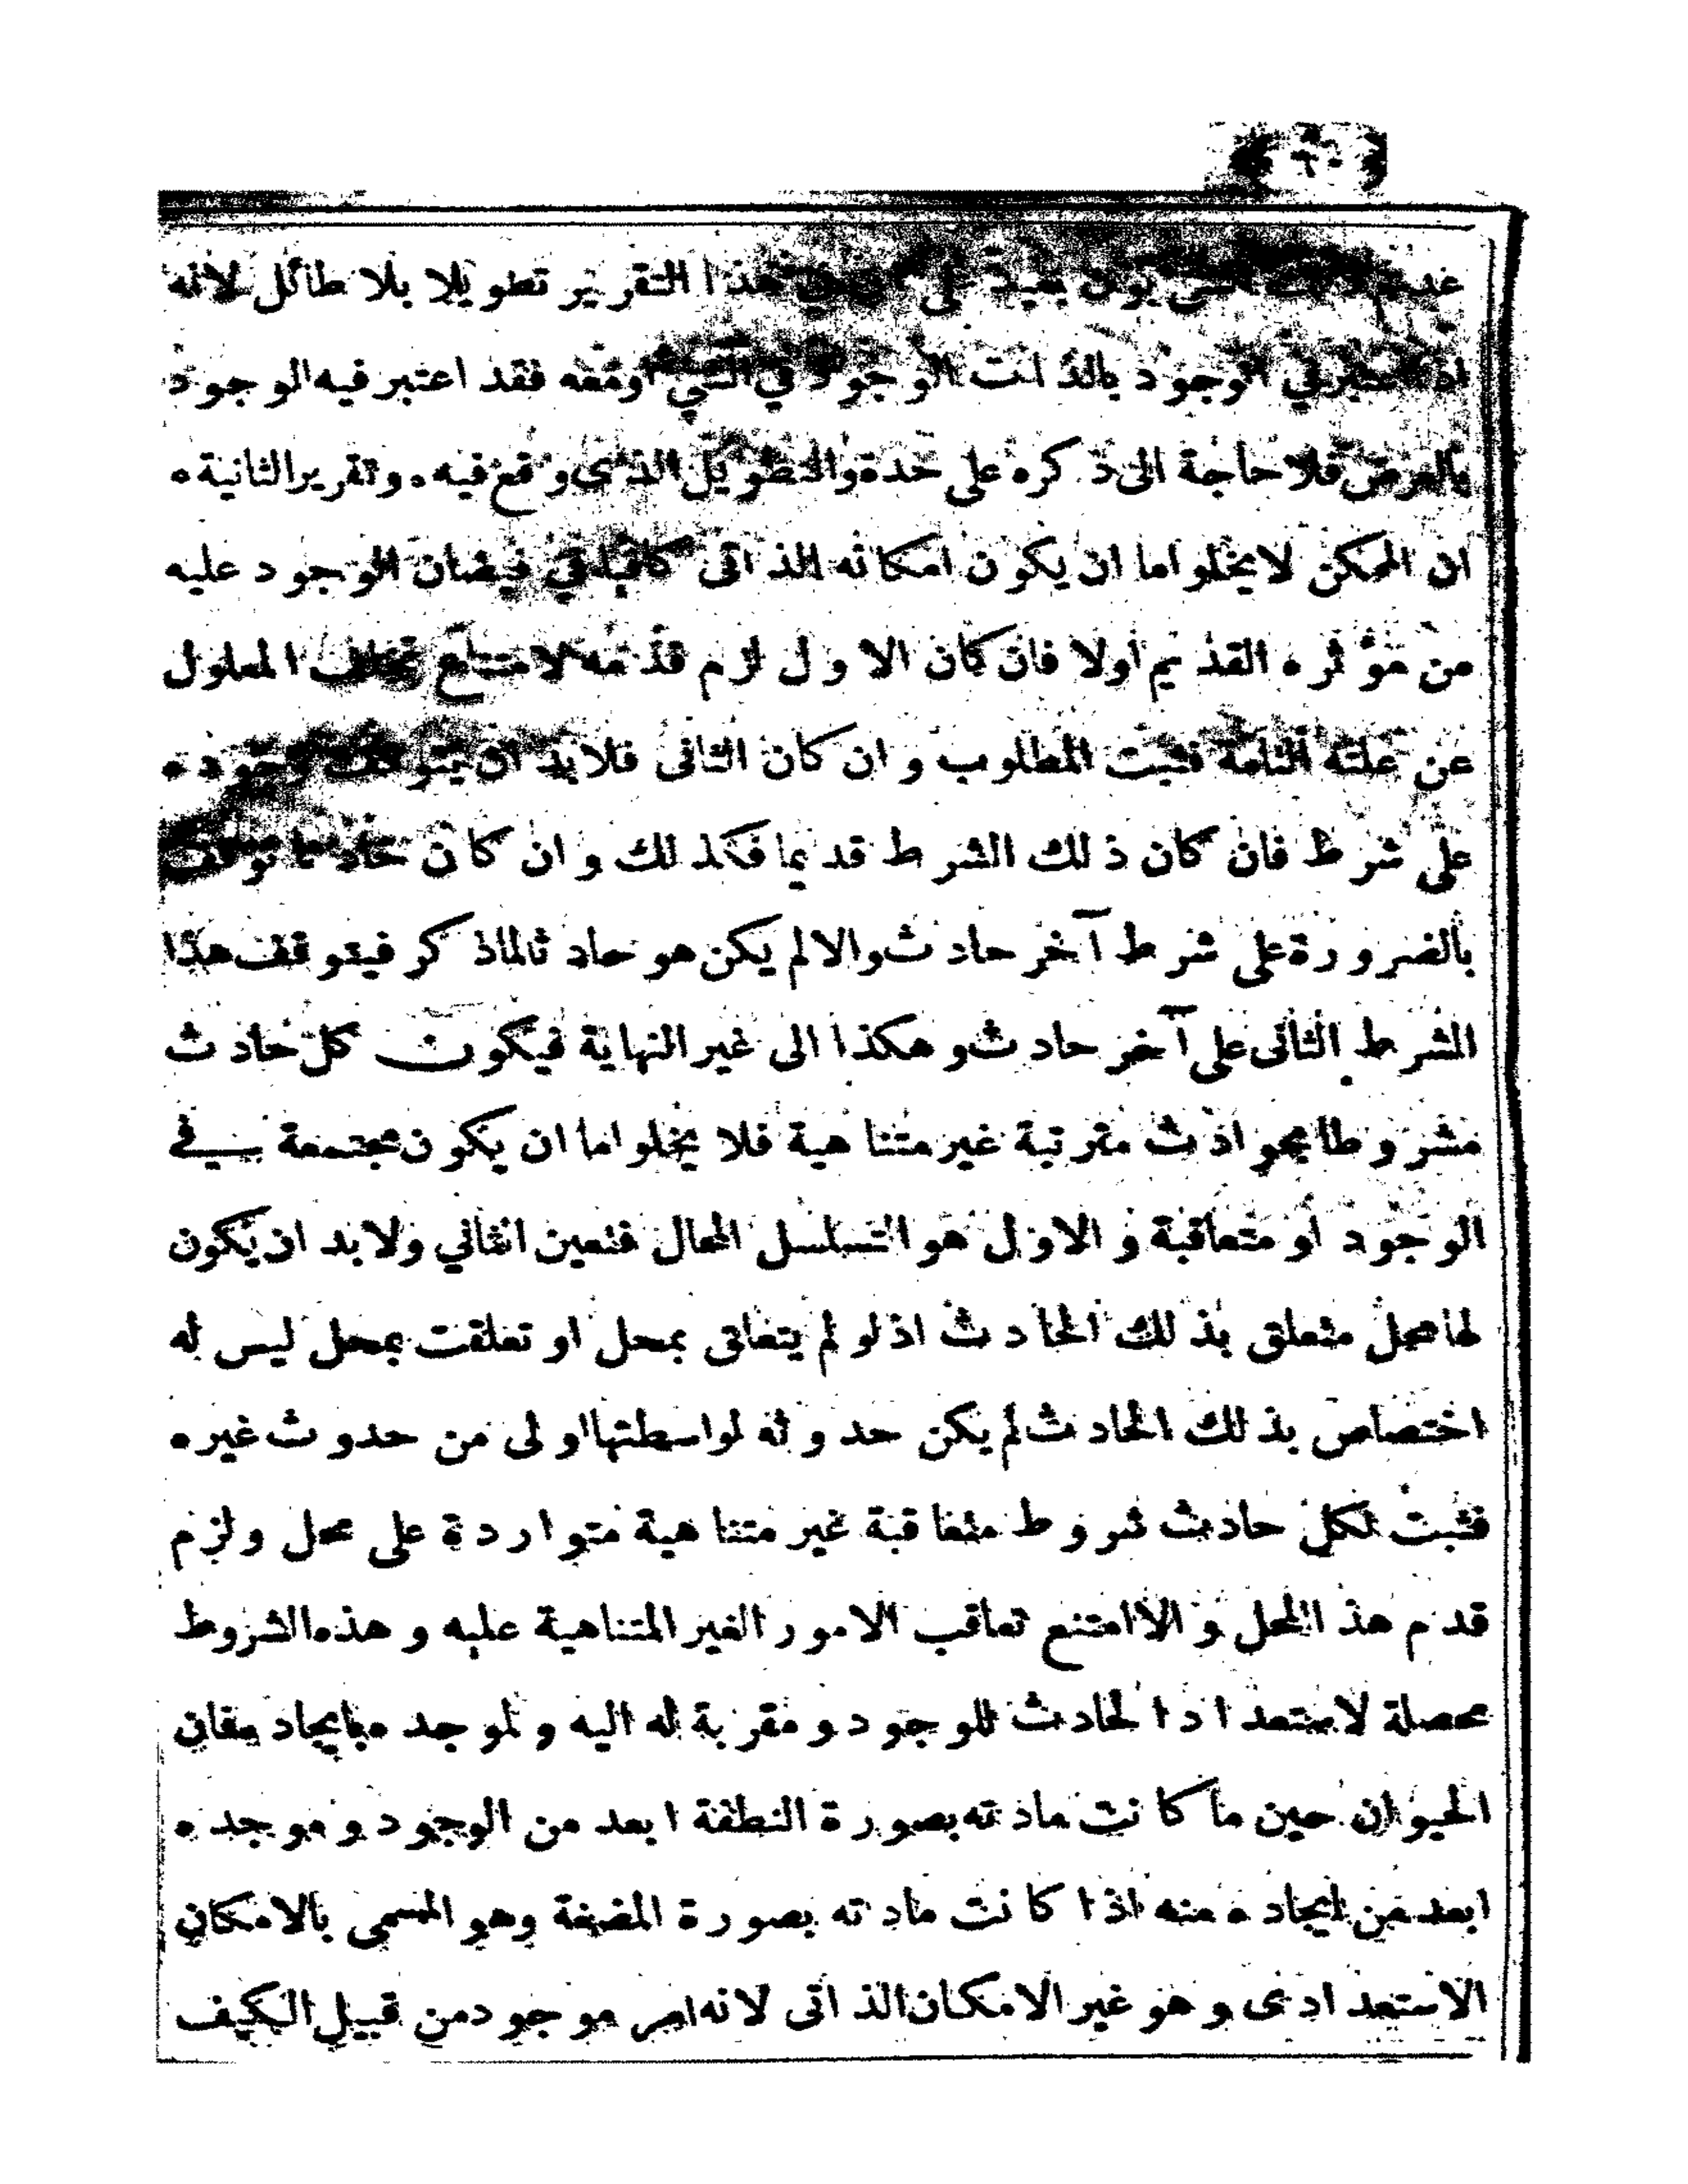 ﴿ ٦٠ ﴾
بون بعيد على هذا التقرير تطويلا بلا طائل لانه
اذا اعتبر في الوجود بالذات الوجود في الشيء اومعه فقد اعتبر فيه الوجود
بالعرض فلا حاجة الى ذكره على حدة والتطويل الذى وقع فيه ٠ وتقرير الثانية ٠
ان الممكن لا يخلو اما ان يكون امكانه الذاتى كافيا في فيضان الوجود عليه
من مؤثره القديم اولا فان كان الاول لزم قدمه لامتناع تخلف المعلول
عن علته التامة فثبت المطلوب وان كان الثانى فلابد ان يتوقف وجوده
على شرط فان كان ذلك الشرط قديما فكذلك وان كان حادثا توقف
بالضرورة على شرط آخر حادث والا لم يكن هو حادثا لماذكر فيتوقف هذا
الشرط الثانى على آخر حادث وهكذا الى غير النهاية فيكون كل حادث
مشروطا بحوادث مترتبة غير متناهية فلا يخلو اما ان يكون مجتمعة في
الوجود او متعاقبة والاول هو التسلسل المحال فتعين الثاني ولابد ان يكون
لها محل متعلق بذلك الحادث اذ لو لم يتعلق بمحل او تعلقت بمحل ليس له
اختصاص بذلك الحادث لم يكن حدوثه لواسطتها اولى من حدوث غيره
فثبت لكل حادث شروط متعاقبة غير متناهية متواردة على محل ولزم
قدم هذا المحل والا امتنع تعاقب الامور الغير المتناهية عليه وهذه الشروط
محصلة لاستعداد الحادث للوجود ومقربة له اليه ولموجده بايجاد
الحيوان حين ما كانت مادته بصورة النطفة ابعد من الوجود وموجده
ابعد من ايجاده منه اذا كانت مادته بصورة المضغة وهو المسمى بالامكان
الاستعدادى وهو غير الامكان الذاتى لانه امر موجود من قبيل الكيف